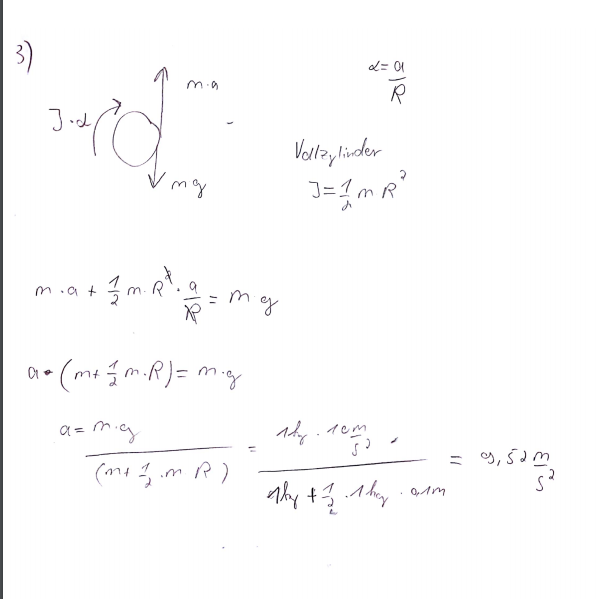 3)
α = a/R
m·a
J·α
Vollzylinder
mg
J = 1/2 m R²
m·a + 1/2 m·R²· a/R = m g
a·(m + 1/2 m·R) = m·g
a = m·g / (m + 1/2·m R) = 1kg · 10 m/s² / 1kg + 1/2 · 1kg · 0,1m = 9,52 m/s²